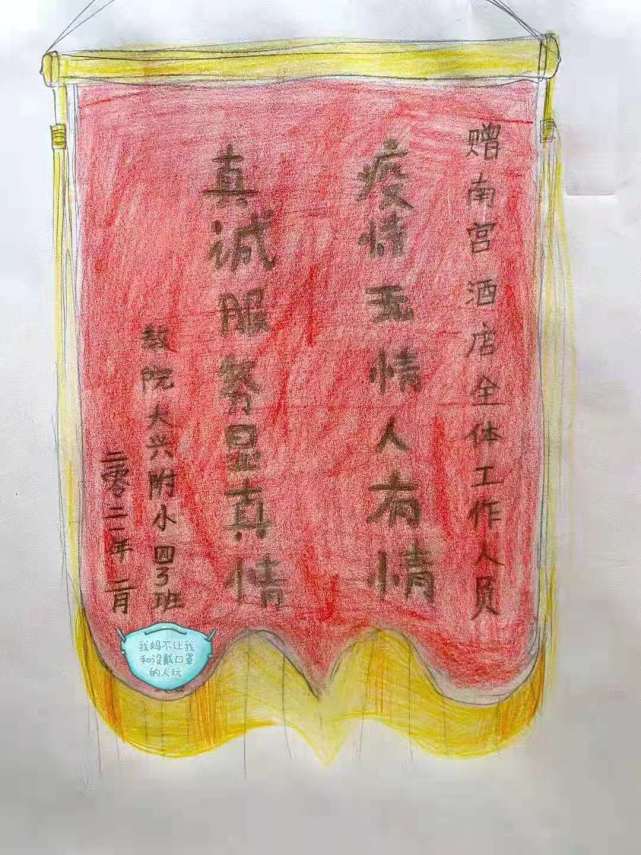 赠南宫酒店全体工作人员
疫情无情人有情
真诚服务显真情
教院大兴附小四3班
二零二一年二月
我妈不让我
和没戴口罩
的人玩